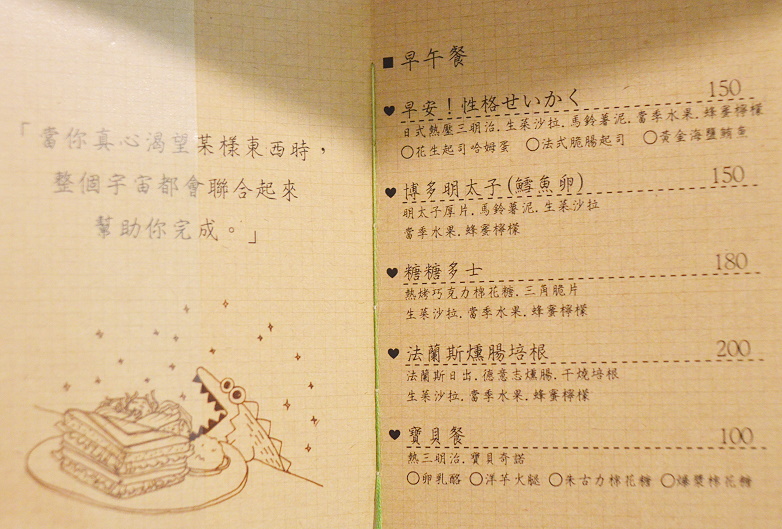 「當你真心渴望某樣東西時，
整個宇宙都會聯合起來
幫助你完成。」
■早午餐
♥早安！性格せいかく 150
日式熱壓三明治.生菜沙拉.馬鈴薯泥.當季水果.蜂蜜檸檬
○花生起司哈姆蛋 ○法式脆腸起司 ○黃金海鹽鮪魚
♥博多明太子(鱈魚卵) 150
明太子厚片.馬鈴薯泥.生菜沙拉
當季水果.蜂蜜檸檬
♥糖糖多士 180
熱烤巧克力棉花糖.三角脆片
生菜沙拉.當季水果.蜂蜜檸檬
♥法蘭斯燻腸培根 200
法蘭斯日出.德意志燻腸.干燒培根
生菜沙拉.當季水果.蜂蜜檸檬
♥寶貝餐 100
熱三明治.寶貝奇諾
○卵乳酪 ○洋芋火腿 ○朱古力棉花糖 ○爆漿棉花糖